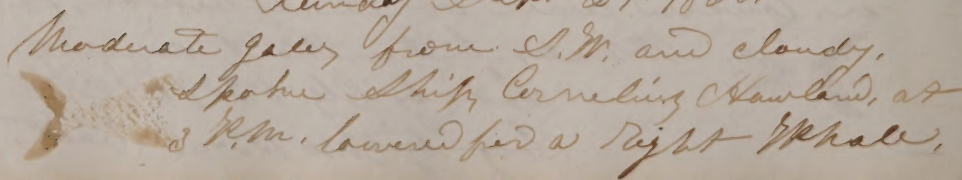 Sunday Sept
Moderate gales from S.W. and cloudy.
Spoke Ship Cornelius Howland, at
3 P.M. lowered for a right Whale.